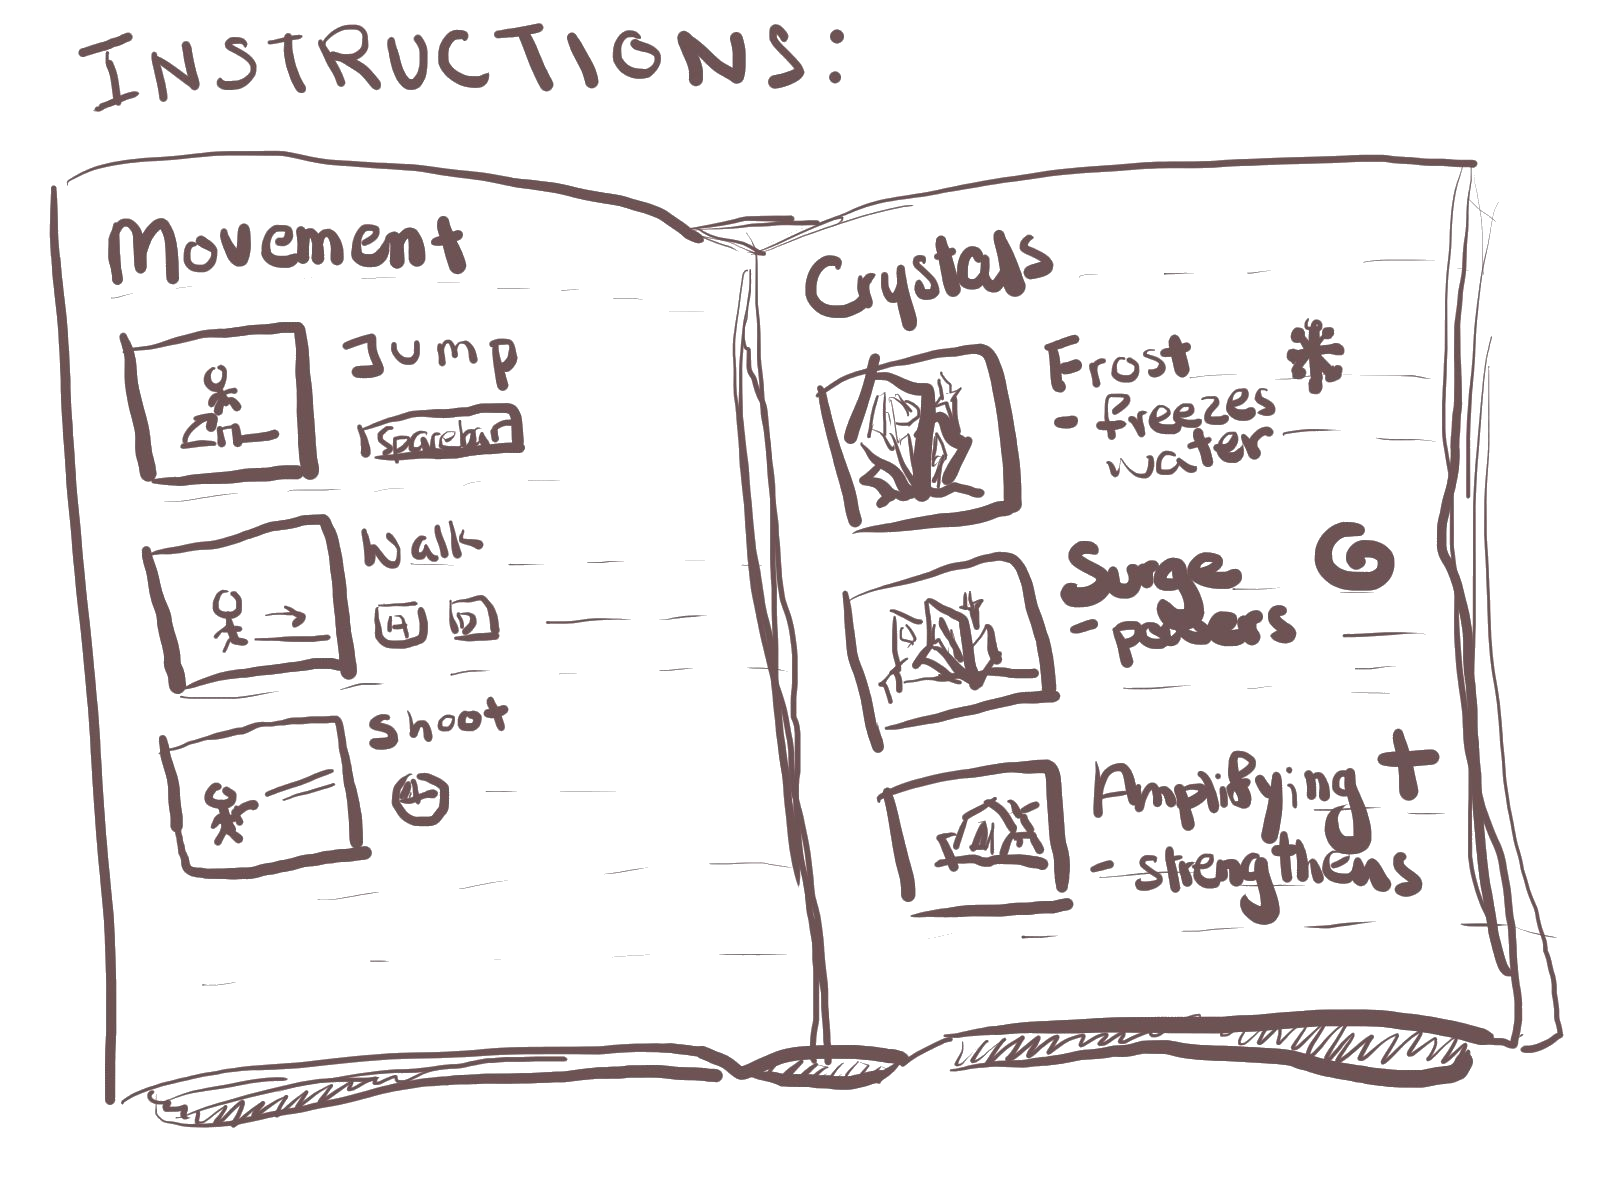 INSTRUCTIONS:
Movement
Jump
Spacebar
Walk
A D
shoot
Crystals
Frost
- freezes
water
Surge
- powers
Amplifying +
- strengthens